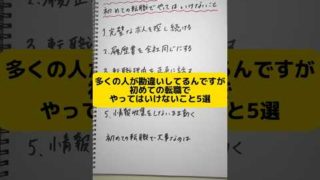 初めての転職でやってはいけないこと
1.完璧な求人を探し続ける
2.履歴書を全社同じにする
多くの人が勘違いしてるんですが
初めての転職で
やってはいけないこと5選
5.情報収集をしないまま動く
初めての転職で大事なのは